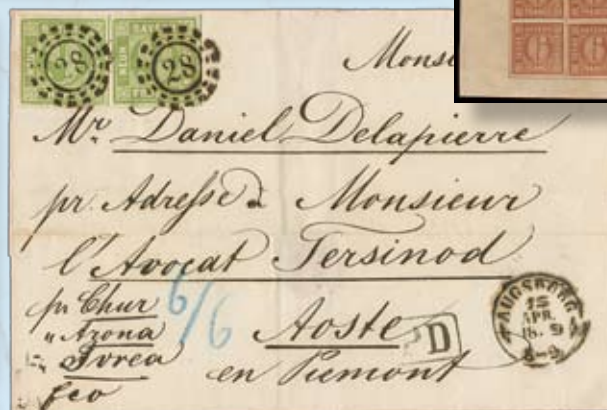 28 28
BAYERN
NEUN
6 6
Monsi
Mr. Daniel Delapierre
pr. Adresse à Monsieur
l'Avocat Tersinod
pr Chur
" Arona
" Ivrea
fco
6/6
Aoste
en Piemont
PD
AUGSBURG
15
APR.